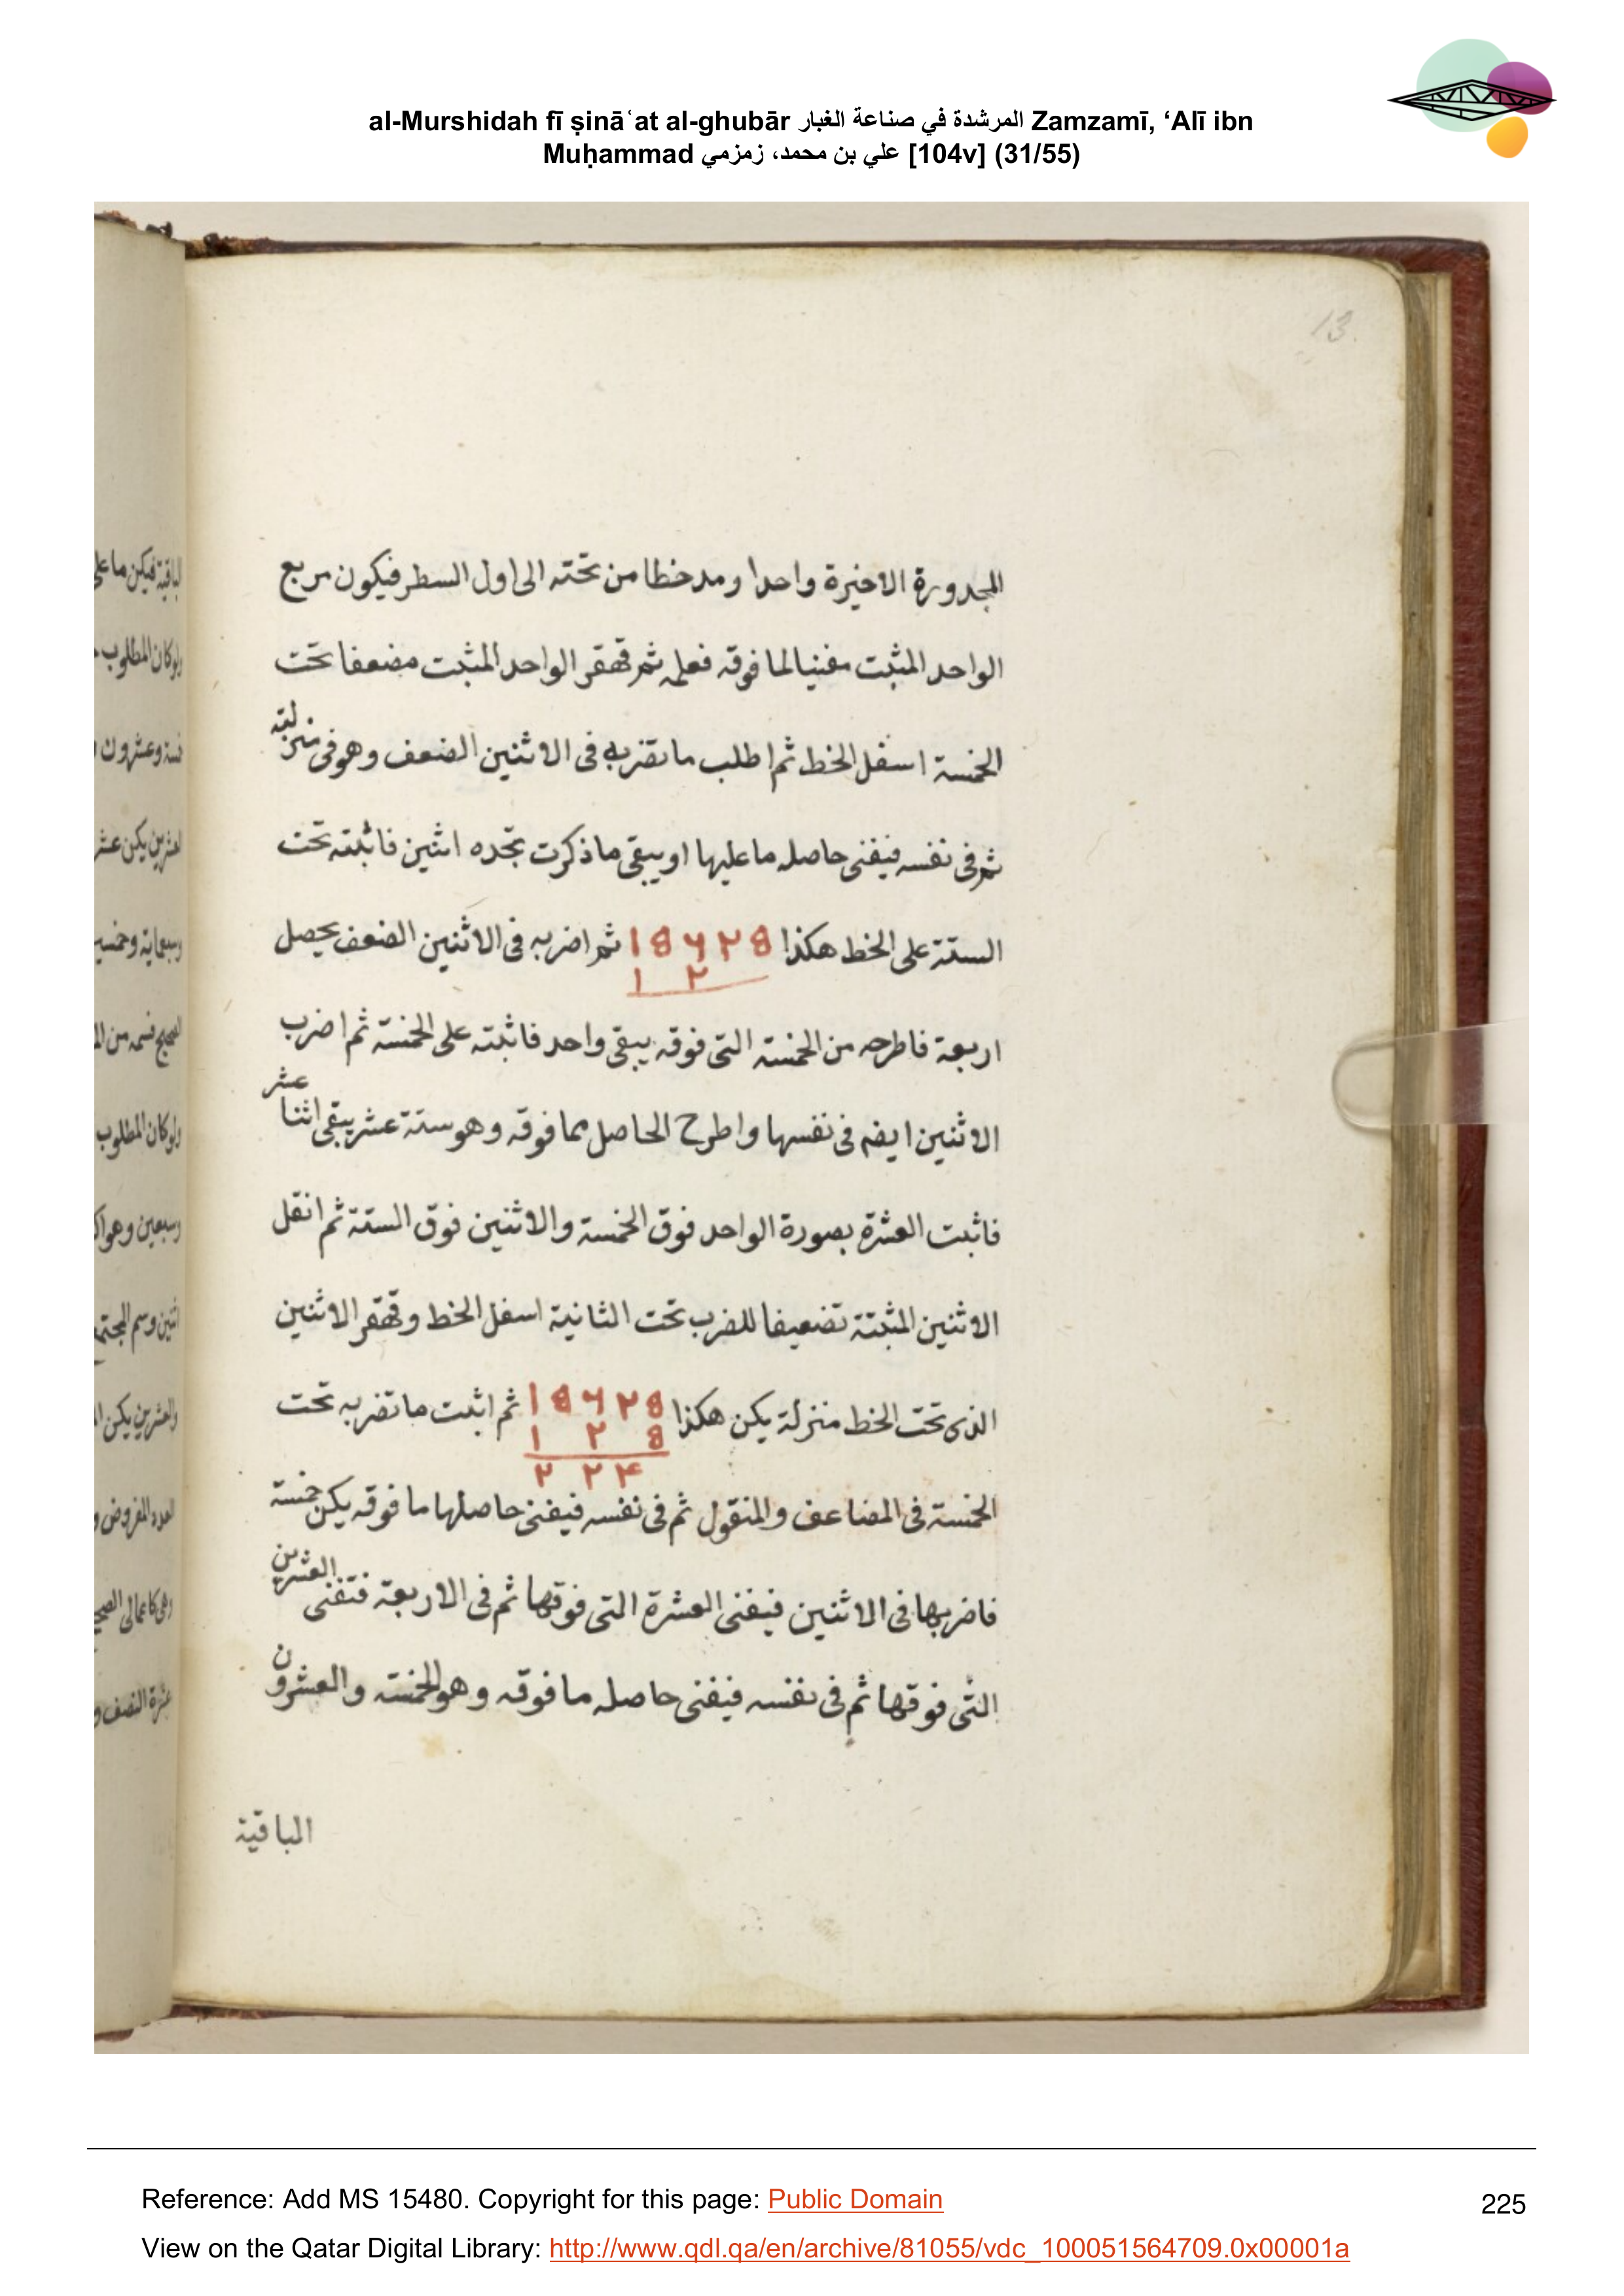 al-Murshidah fī ṣināʿat al-ghubār المرشدة في صناعة الغبار Zamzamī, ‘Alī ibn
Muḥammad علي بن محمد، زمزمي [104v] (31/55)
13
المجدورة الاخيرة واحدا ومد خطا من تحته الى اول السطر فيكون مربع
الواحد المثبت مفنيا لما فوقه فعلم ثم قهقر الواحد المثبت مضعفا تحت
الخمسة اسفل الخط ثم اطلب ما تضربه فى الاثنين الضعف وهو فى منزلته
ثم فى نفسه فيفنى حاصله ما عليها او يبقى ما ذكرت تجده اثنين فاثبته تحت
الستة على الخط هكذا ١٥٦٢٥ ثم اضربه فى الاثنين الضعف يحصل
١ ٢
اربعة فاطرحه من الخمسة التى فوقه يبقى واحد فاثبته على الخمسة ثم اضرب
الاثنين ايضه فى نفسها واطرح الحاصل مما فوقه وهو ستة عشر يبقى اثنا عشر
فاثبت العشرة بصورة الواحد فوق الخمسة والاثنين فوق الستة ثم انقل
الاثنين المثبتة تضعيفا للضرب تحت الثانية اسفل الخط وقهقر الاثنين
الذى تحت الخط منزلة يكن هكذا ١٥٦٢٥ ثم اثبت ما تضربه تحت
١ ٢ ٥
٢ ٢ ٤
الخمسة فى المضاعف والمنقول ثم فى نفسه فيفنى حاصلها ما فوقه يكن خمسة
فاضربها فى الاثنين فيفنى العشرة التى فوقها ثم فى الاربعة فتفنى العشرين
التى فوقها ثم فى نفسه فيفنى حاصله ما فوقه وهو الخمسة والعشرون
الباقية
Reference: Add MS 15480. Copyright for this page: Public Domain
225
View on the Qatar Digital Library: http://www.qdl.qa/en/archive/81055/vdc_100051564709.0x00001a